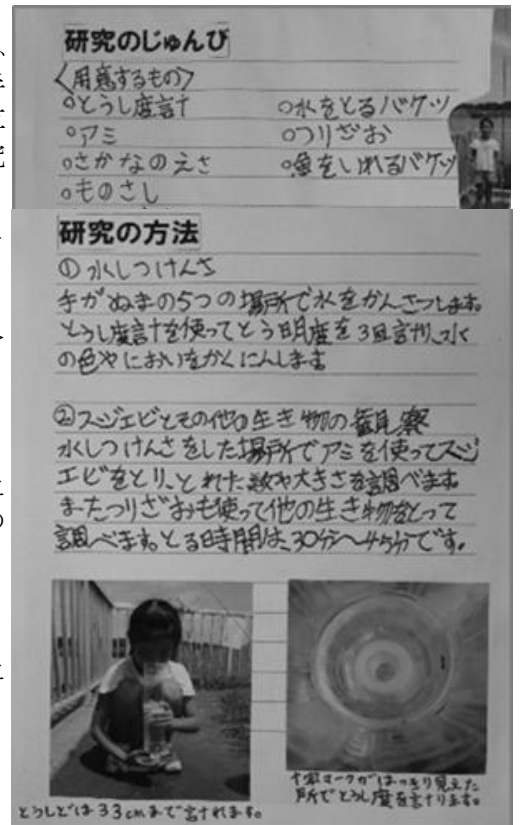 研究のじゅんび
〈用意するもの〉
○とうし度計 ○水をとるバケツ
○アミ ○つりざお
○さかなのえさ ○魚をいれるバケツ
○ものさし
研究の方法
①水しつけんさ
手がぬまの5つの場所で水をかんさつします。
とうし度計を使ってとう明度を3回計り、水
の色やにおいをかくにんします
②スジエビとその他の生き物の観察
水しつけんさをした場所でアミを使ってスジ
エビをとり、とれた数や大きさを調べます。
またつりざおも使って他の生き物をとって
調べます。とる時間は、30分〜45分です。
とうしどは33cmまで計れます。
十字マークがはっきり見えた
所でとうし度を計ります。